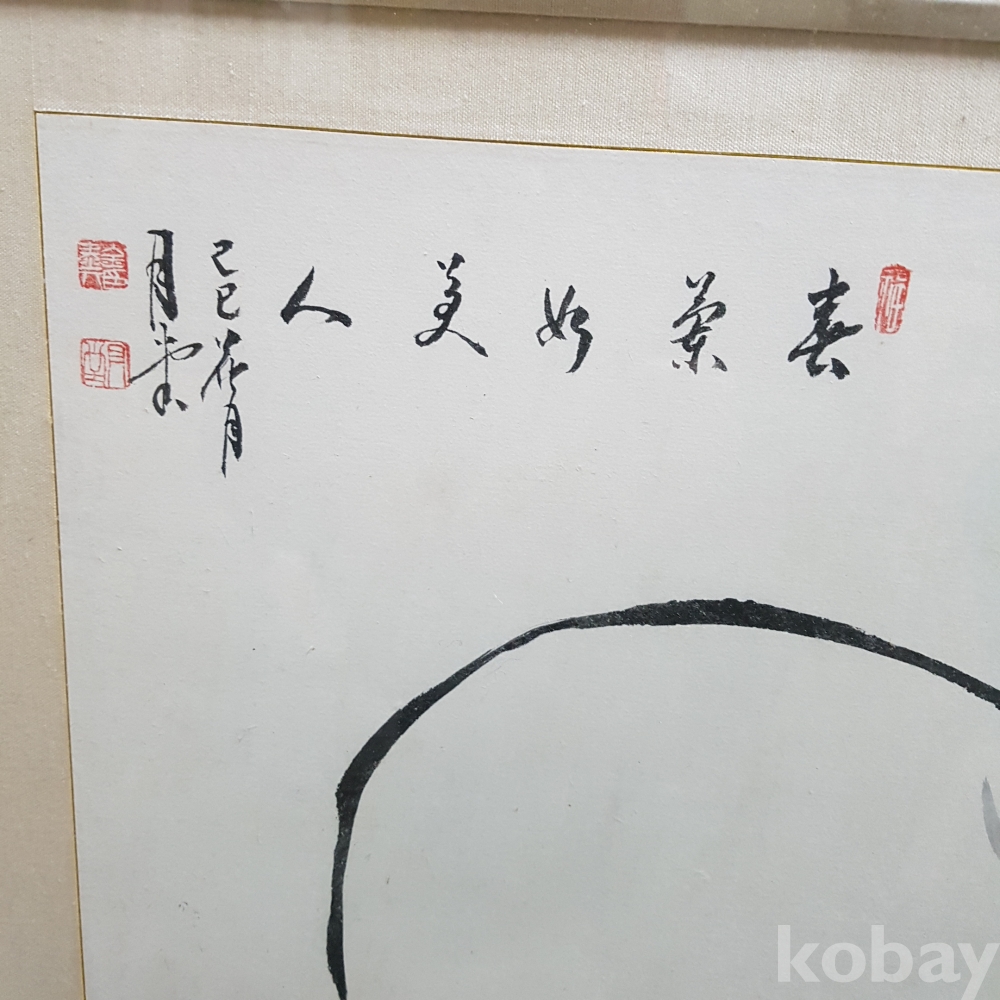 春蘭如美人
己巳花月
月堂
kobay